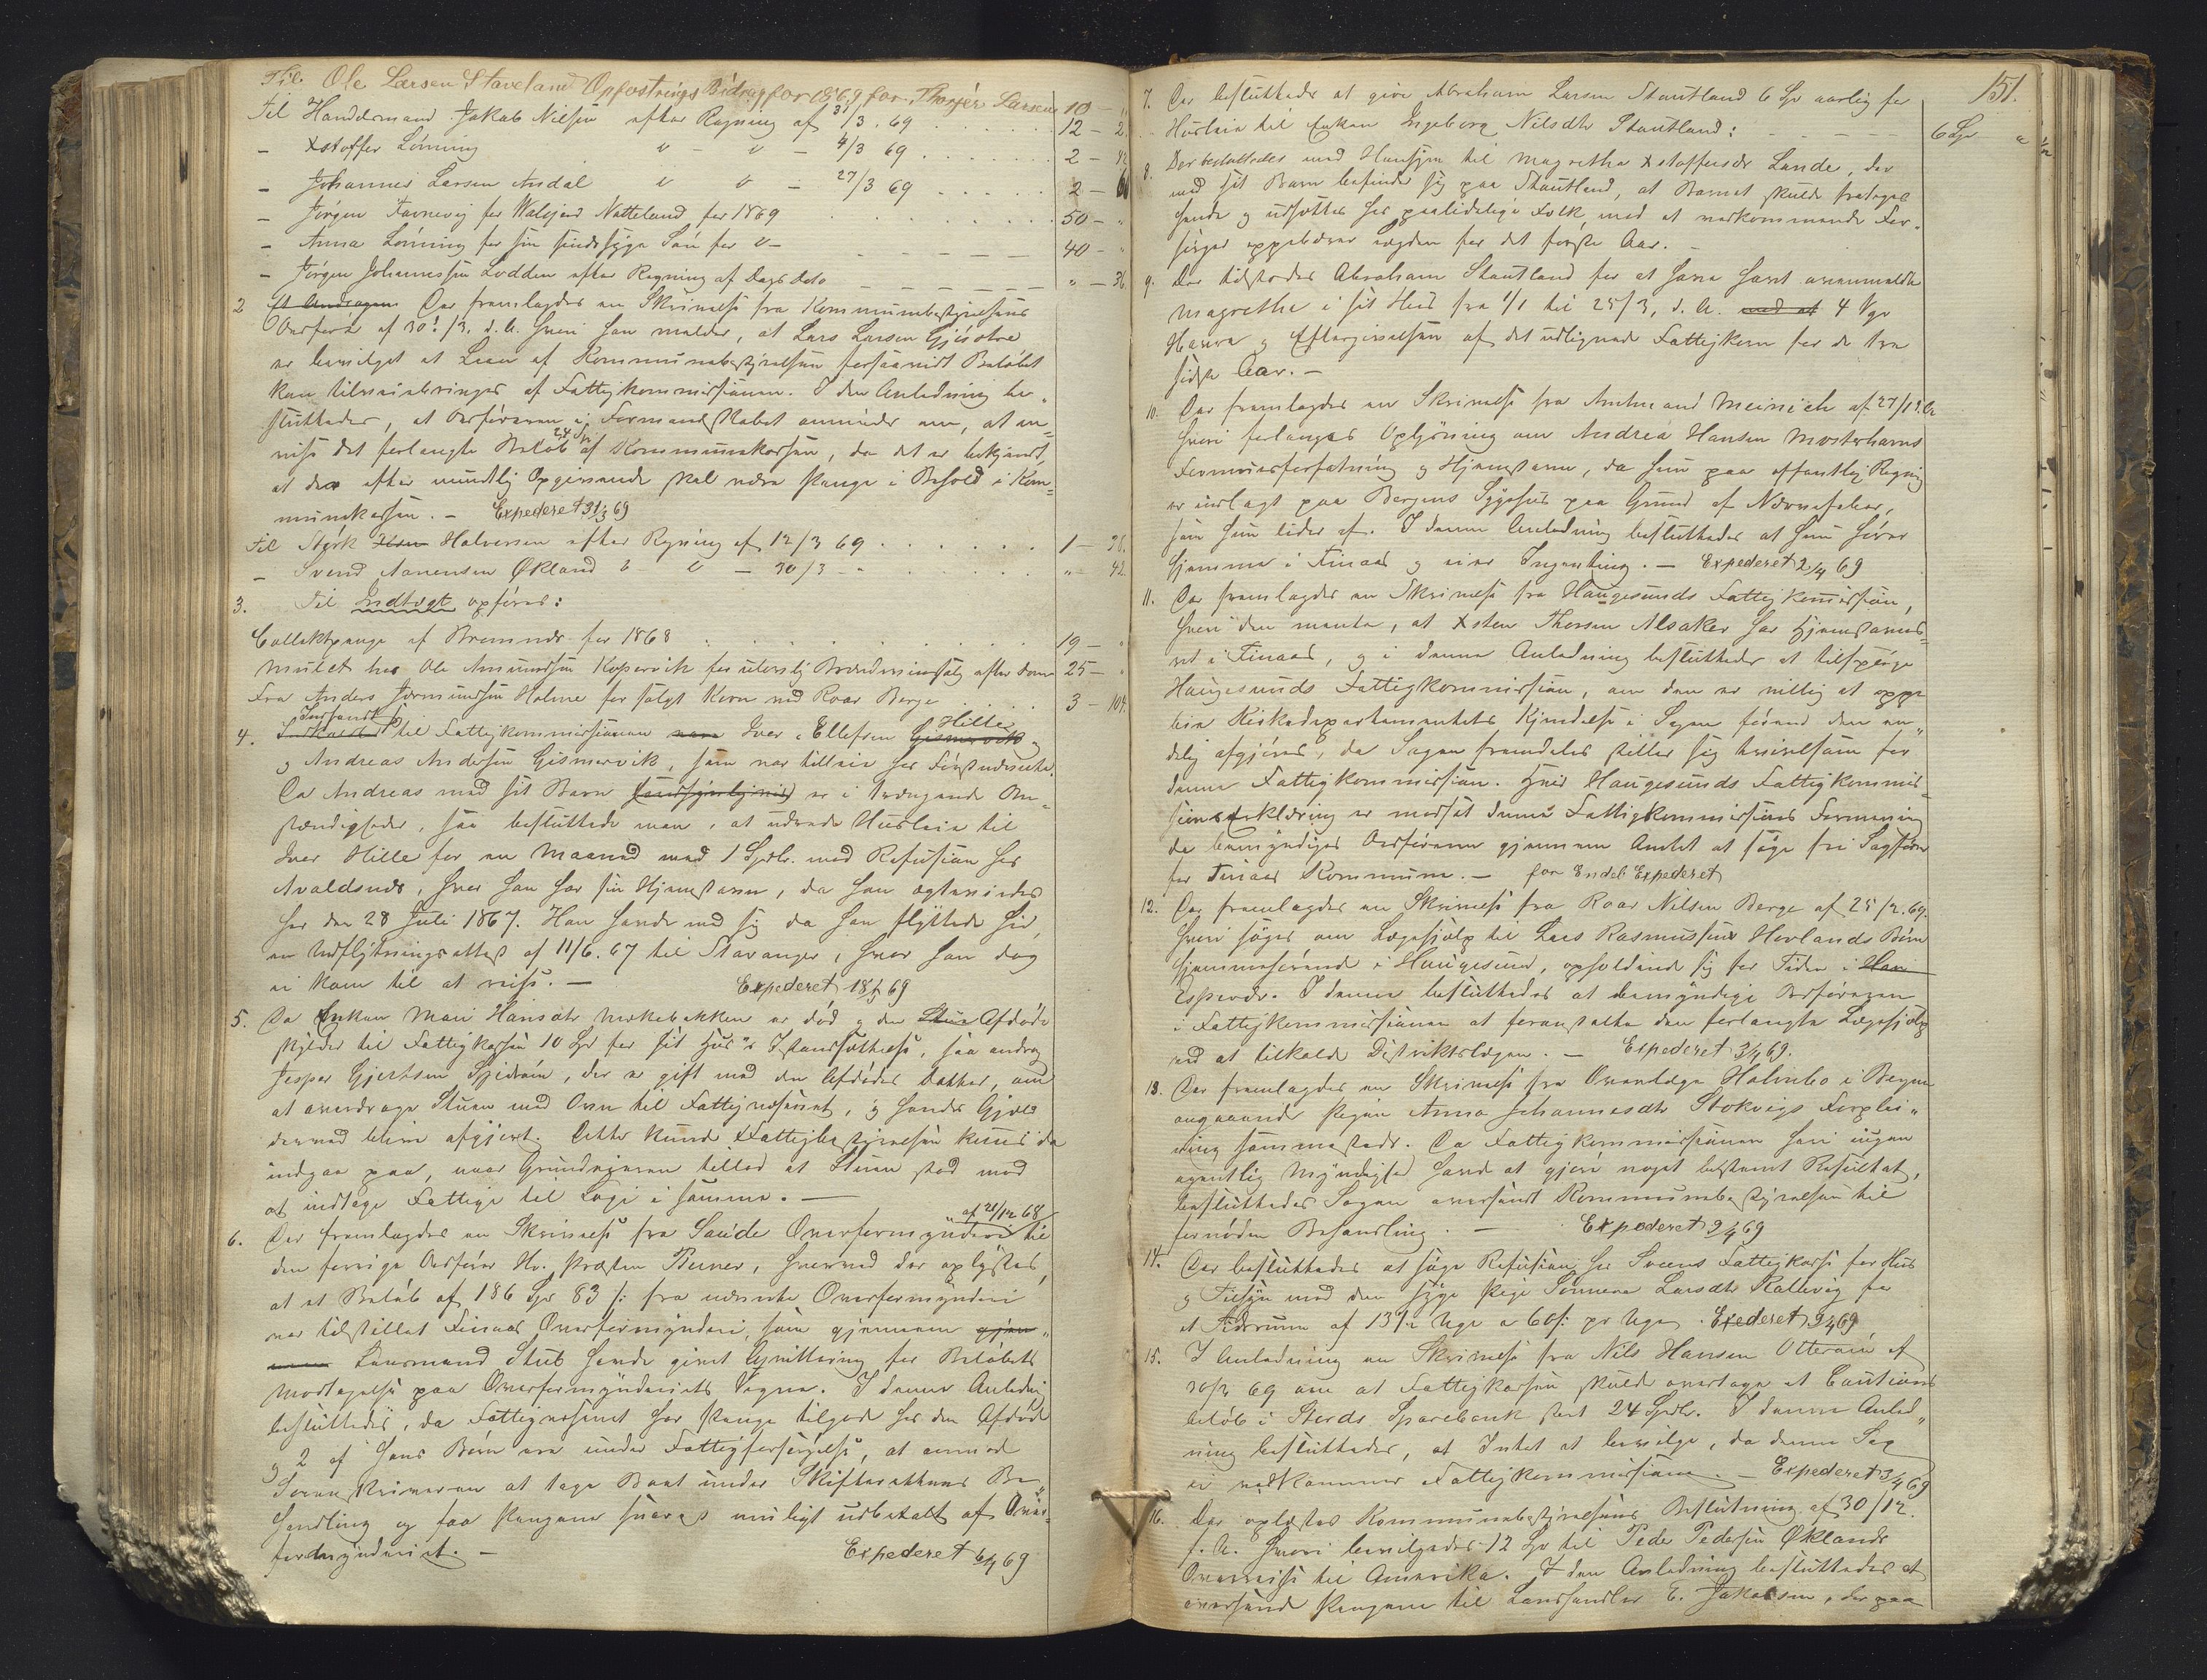 Til Ole Larsen Staveland Opfostrings Bidrag for 1869 for Thorjer Larsen 10 - "
Til Handelsmand Jakob Nilsen efter Regning af 31/3. 69 12 - 2
- Xstoffer Lönning " - " - 4/3 69 2 -
- Johannes Larsen Andal " " - 27/3 69 2 -
- Jörgen Favnevig for Valejerd Natteland for 1869 50 - "
- Anna Lönning for sin sindssyge Sön for " - 40 - "
- Jörgen Johannessen Lodden efter Regning af Dags Dato " - 36
2 Der fremlagdes en Skrivelse fra Kommunebestyrelsens
Ordförer af 30/3. d. A. hvori han melder, at Lars Larsen Gjösstre
er bevilget et Laan af Kommunebestyrelsen forsaavidt Belöbet
kan tilveiebringes af Fattigkommissionen. I den Anledning be-
sluttedes, at Ordföreren i Formandskabet anmodes om, at an-
vise det forlangte Belöb 24 Sp af Kommunekassen, da det er bekjendt,
at der efter mundtlig Opgivende skal være Penge i Behold i Kom-
munekassen. - Expederet 31/3 69
Til Styrk Halvorsen efter Regning af 12/3 69 1 - 36.
- Svend Aanensen Økland " " - 30/3 - " " - 42.
3. Til Indtægt opföres:
Collektpenge af Bremnes for 1868 19 - "
Mulct hos Ole Amundsen Kopervik for ulovlig Brændevinssalg efter Dom 25 - "
Fra Anders Jörmundsen Holme for solgt Korn ved Roar Berge 3 - 104.
4. Indkaldt til Fattigkommissionen Iver Ellefsen Hille
og Andreas Andersen Gismervik, som var tilleie hos Förstnævnte.
Da Andreas med sit Barn er i trængende Om-
stændigheder, saa besluttede man, at udrede Husleie til
Iver Hille for en Maaned med 1 Spdlr. mod Refusion hos
Avaldsnes, hvor han har sin Hjemstavn, da han ægteviedes
her den 28 Juli 1867. Han havde med sig da han flyttede hid,
en Udflytningsattest af 11/6. 67 til Stavanger, hvor han dog
ei kom til at reise. - Expederet 18/4 69
5. Da Enken Mari Hansdtr Merkebakken er död og den Afdöde
skylder til Fattigkassen 10 Sp for sit Hus's Istandsættelse, saa androg
Jesper Gjertsen Spidsöen, der er gift med den Afdödes Datter, om
at overdrage Stuen med Ovn til Fattigvæsenet, og hendes Gjæld
dermed blive afgjort. Dette kunde Fattigbestyrelsen kun da
indgaa paa, naar Grundeieren tillod at Stuen stod med
at indtage Fattige til Logi i samme. -
6. Der fremlagdes en Skrivelse fra Saude Overformynderi af 21/12 68 til
den forrige Ordförer Hr. Presten Berner, hvorved der oplystes,
at et Belöb af 186 Sp 83 s: fra nævnte Overformynderi
var tilstillet Finaas Overformynderi, som gjennem
Lensmand Stub havde givet Qvittering for Belöbets
Modtagelse paa Overformynderiets Vegne. I denne Anledning
besluttedes, da Fattigvæsenet har Penge tilgode hos den Afdöde
og 2 af hans Börn ere under Fattigforsörgelse, at anmode
Sorenskriveren at tage Boet under Skifterettens Be-
handling og faa Pengene snarest muligt udbetalt af Over-
formynderiet. - Expederet 6/4 69
151.
7. Der besluttedes at give Abraham Larsen Stautland 6 Sp aarlig for
Husleie til Enken Ingeborg Nilsdtr Stautland: - 6 Sp "
8. Der besluttedes med Hensyn til Magrethe Xstoffersdr Lande, der
med sit Barn befinder sig paa Stautland, at Barnet skulde fratages
hende og udsættes hos paalidelige Folk, mod at vedkommende For-
sörger oppebærer Lægden for det förste Aar. -
9. Der tilstodes Abraham Stautland for at have havt ovenmeldte
Magrethe i sit Hus fra 1/1 til 25/3, d. A. 4 Vgr
Havre og Eftergivelsen af det udlignede Fattigkorn for de tre
sidste Aar. -
10. Der fremlagdes en Skrivelse fra Amtmand Meinich af 27/1 d. A
hvori forlanges Oplysning om Andrea Hansen Mosterhavns
Formuesforfatning og Hjemstavn, da hun paa offentlig Regning
er indlagt paa Bergens Sygehus paa Grund af Nervefeber,
som hun lider af. I denne Anledning besluttedes at hun hörer
hjemme i Finaas og eier Ingenting. - Expederet 2/4 69
11. Der fremlagdes en Skrivelse fra Haugesunds Fattigkommission,
hvori den mente, at Xsten Thorsen Alsaker har Hjemstavns-
ret i Finaas, og i denne Anledning besluttedes at tilspörge
Haugesunds Fattigkommission, om den er villig at oppe
bie Kirkedepartementets Kjendelse i Sagen förend den en-
delig afgjöres, da Sagen fremdeles stiller sig tvivlsom for
denne Fattigkommission. Hvis Haugesunds Fattigkommis-
sions Erklæring er modsat denne Fattigkommissions Formening
da bemyndiges Ordföreren gjennem Amtet at söge fri Sagförer
for Finaas Kommune. - for Endel Expederet
12. Der fremlagdes en Skrivelse fra Roar Nilsen Berge af 25/2. 69.
hvori söges om Lægehjælp til Lars Rasmussens Hovlands Börn
hjemmehörende i Haugesund, opholdende sig for Tiden i
Espevær. I denne besluttedes at bemyndige Ordföreren
i Fattigkommissionen at foranstalte den forlangte Lægehjælp
ved at tilkalde Distriktslægen. - Expederet 3/4 69.
13. Der fremlagdes en Skrivelse fra Overlæge Holmbo i Bergen
angaaende Pigen Anna Johannesdtr Stokvigs Forplei-
ning sammesteds. Da Fattigkommissionen heri ingen
egentlig Myndighed havde at gjöre noget bestemt Resultat,
besluttedes Sagen oversendt Kommunebestyrelsen til
fornöden Behandling. - Expederet 2/4 69
14. Der besluttedes at söge Refusion hos Sveens Fattigkasse for Hus
og Tilsyn med den syge Pige Sönneva Larsdtr Kallevig for
et Tidsrum af 13 1/2 Uge a 60 s: pr Uge. Exederet 3/4 69
15. I Anledning en Skrivelse fra Nils Hansen Otteröie af
30/3 69 om at Fattigkassen skulde overtage et Cautions
belöb i Stords Sparebank stort 24 Spdlr. I denne Anled-
ning besluttedes, at Intet at bevilge, da denne Sag
ei vedkommer Fattigkommissionen. - Expederet 3/4 69
16. Der oplæstes Kommunebestyrelsens Beslutning af 30/12.
f. A. hvori bevilgedes 12 Sp til Peder Pedersen Øklands
Overreise til Amerika. I den Anledning besluttedes at
oversende Pengene til Landhandler E. Jakobsen, der paa